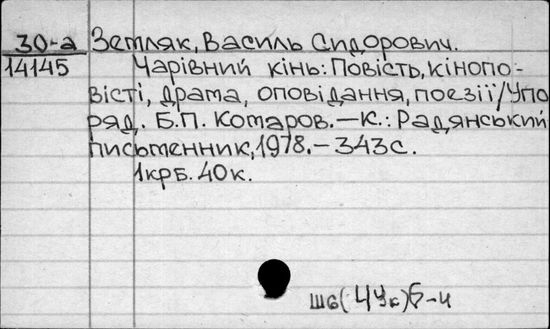 30-а Земляк, Василь Сидорович.
14145 Чарівний кінь: Повість, кінопо-
вісті, драма, оповідання, поезії/Упо
ряд. Б.П. Комаров.—К.: Радянський
письменник, 1978.— 343с.
1крб. 40к.
Ш6(4Ук)6-4